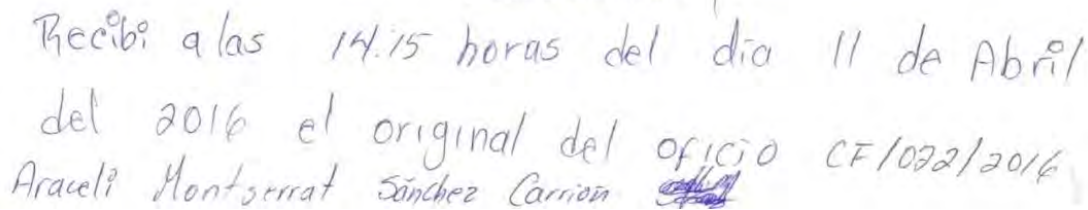 Recibi a las 14:15 horas del dia 11 de Abril
del 2016 el original del oficio CF/022/2016
Araceli Montserrat Sánchez Carrion